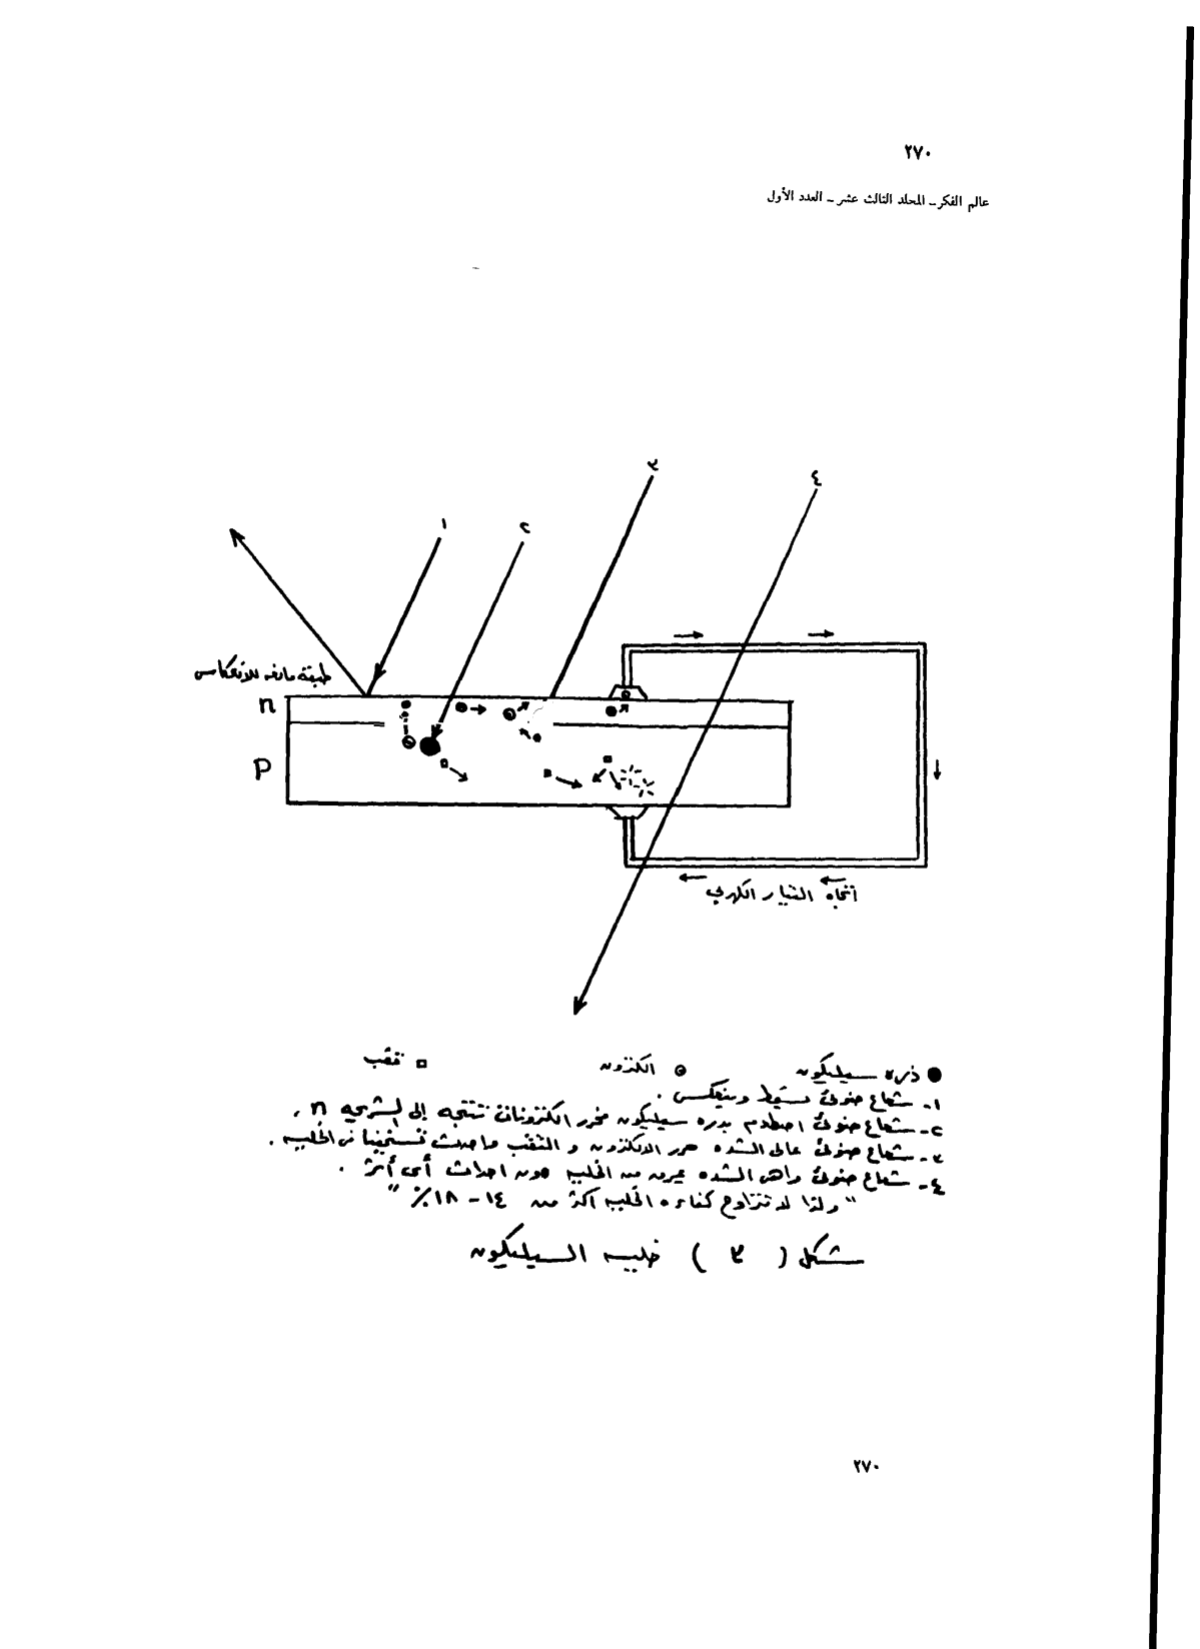 ٢٧٠
عالم الفكر ـ المجلد الثالث عشر ـ العدد الأول
٣
٤
١
٢
طبقة مانعه للانعكاس
n
p
اتجاه التيار الكهربي
ذره سيليكون
الكترون
ثقب
١- شعاع ضوئى يسقط وينعكس .
٢- شعاع ضوئى اصطدم بذره سيليكون فحرر الكترونات تتجه إلى الشريحه n .
٣- شعاع ضوئى عالى الشده حرر الالكترون و الثقب فأحدث تسخينا فى الخليه .
٤- شعاع ضوئى واهى الشده يمرق من الخليه دون احداث أى أثر .
" ولذا لا تتراوح كفاءه الخليه أكثر من ١٤ - ١٨٪ "
شكل ( ٣ ) خليه السيليكون
٢٧٠